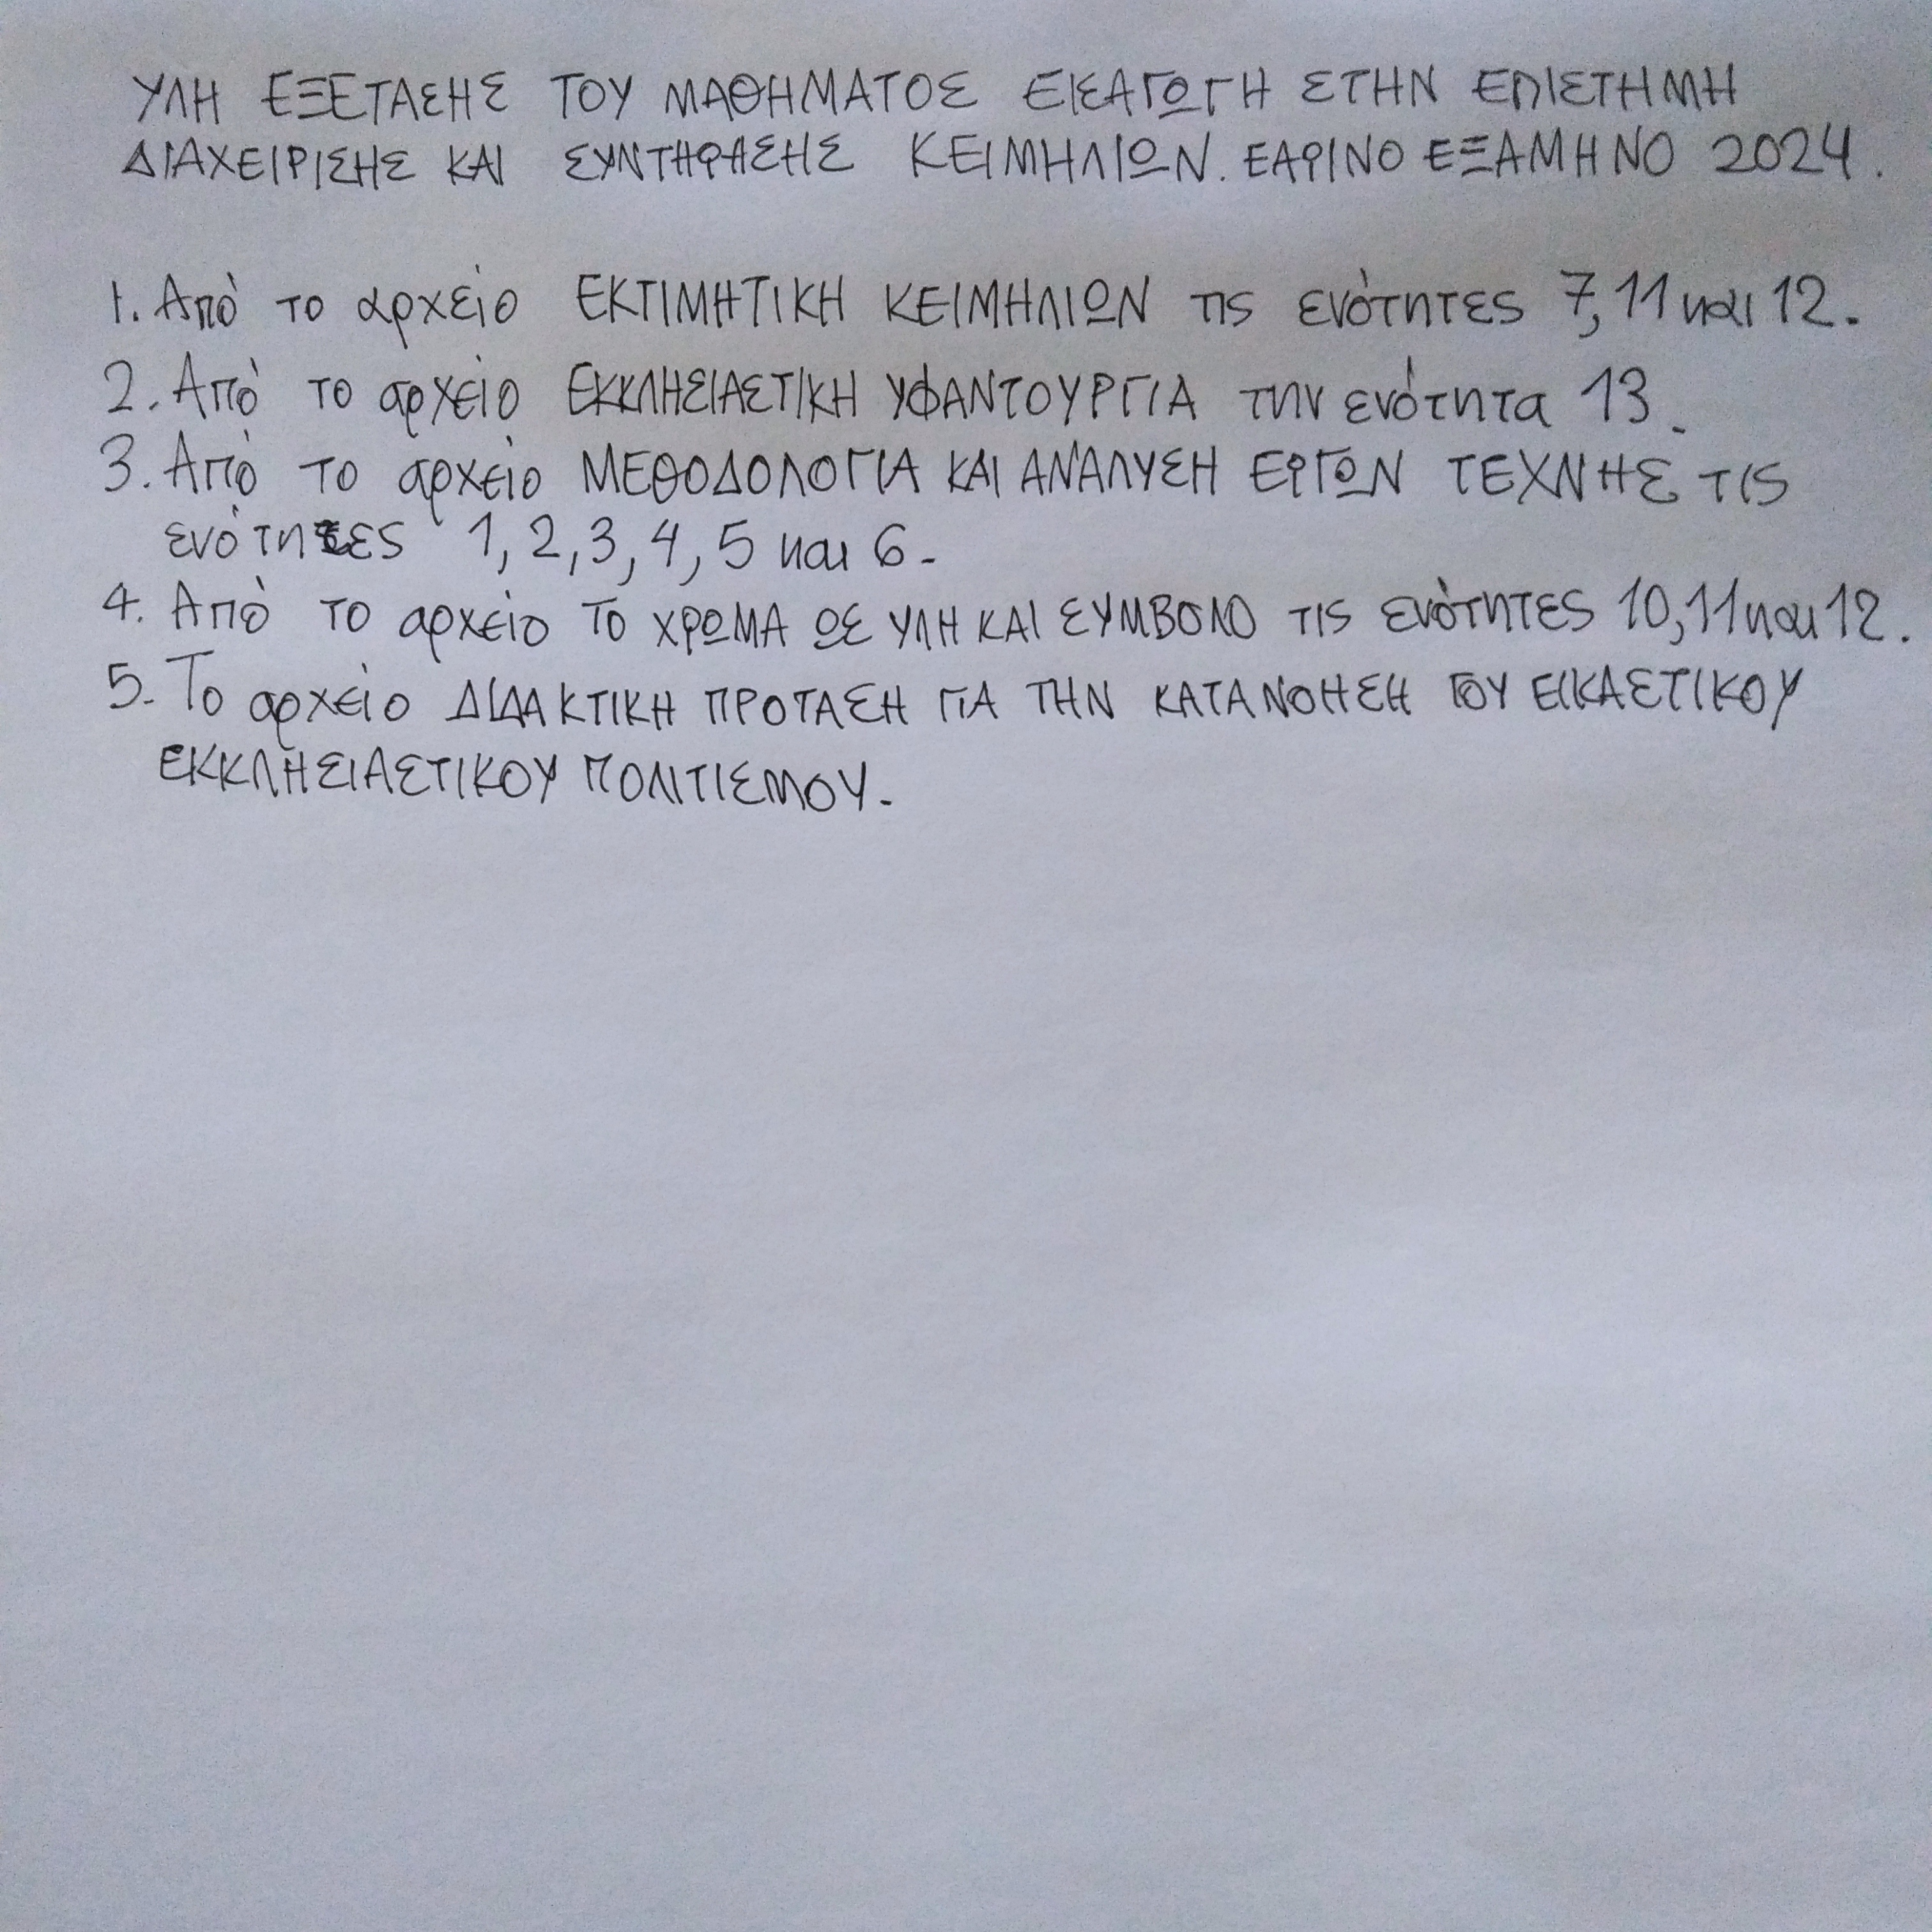 ΥΛΗ ΕΞΕΤΑΣΗΣ ΤΟΥ ΜΑΘΗΜΑΤΟΣ ΕΙΣΑΓΩΓΗ ΣΤΗΝ ΕΠΙΣΤΗΜΗ
ΔΙΑΧΕΙΡΙΣΗΣ ΚΑΙ ΣΥΝΤΗΡΗΣΗΣ ΚΕΙΜΗΛΙΩΝ. ΕΑΡΙΝΟ ΕΞΑΜΗΝΟ 2024.
1. Από το αρχείο ΕΚΤΙΜΗΤΙΚΗ ΚΕΙΜΗΛΙΩΝ τις ενότητες 7, 11 και 12.
2. Από το αρχείο ΕΚΚΛΗΣΙΑΣΤΙΚΗ ΥΦΑΝΤΟΥΡΓΙΑ την ενότητα 13.
3. Από το αρχείο ΜΕΘΟΔΟΛΟΓΙΑ ΚΑΙ ΑΝΑΛΥΣΗ ΕΡΓΩΝ ΤΕΧΝΗΣ τις
ενότητες 1, 2, 3, 4, 5 και 6.
4. Από το αρχείο ΤΟ ΧΡΩΜΑ ΩΣ ΥΛΗ ΚΑΙ ΣΥΜΒΟΛΟ τις ενότητες 10, 11 και 12.
5. Το αρχείο ΔΙΔΑΚΤΙΚΗ ΠΡΟΤΑΣΗ ΓΙΑ ΤΗΝ ΚΑΤΑΝΟΗΣΗ ΤΟΥ ΕΙΚΑΣΤΙΚΟΥ
ΕΚΚΛΗΣΙΑΣΤΙΚΟΥ ΠΟΛΙΤΙΣΜΟΥ.